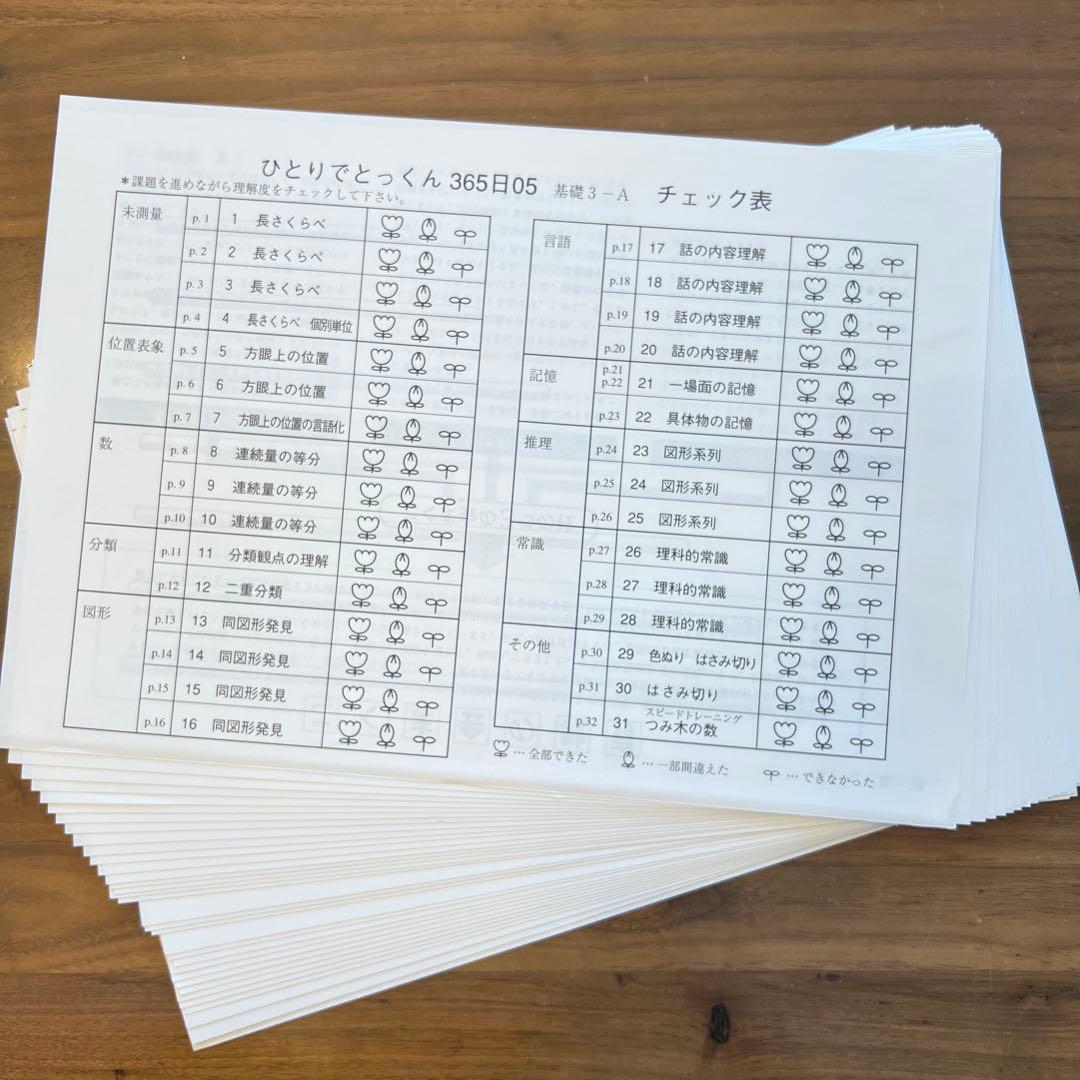 ひとりでとっくん 365日05 基礎3-A チェック表
*課題を進めながら理解度をチェックして下さい。
未測量 p.1 1 長さくらべ
p.2 2 長さくらべ
p.3 3 長さくらべ
p.4 4 長さくらべ 個別単位
位置表象 p.5 5 方眼上の位置
p.6 6 方眼上の位置
p.7 7 方眼上の位置の言語化
数 p.8 8 連続量の等分
p.9 9 連続量の等分
p.10 10 連続量の等分
分類 p.11 11 分類観点の理解
p.12 12 二重分類
図形 p.13 13 同図形発見
p.14 14 同図形発見
p.15 15 同図形発見
p.16 16 同図形発見
言語 p.17 17 話の内容理解
p.18 18 話の内容理解
p.19 19 話の内容理解
p.20 20 話の内容理解
記憶 p.21 p.22 21 一場面の記憶
p.23 22 具体物の記憶
推理 p.24 23 図形系列
p.25 24 図形系列
p.26 25 図形系列
常識 p.27 26 理科的常識
p.28 27 理科的常識
p.29 28 理科的常識
その他 p.30 29 色ぬり はさみ切り
p.31 30 はさみ切り
スピードトレーニング
p.32 31 つみ木の数
…全部できた …一部間違えた …できなかった